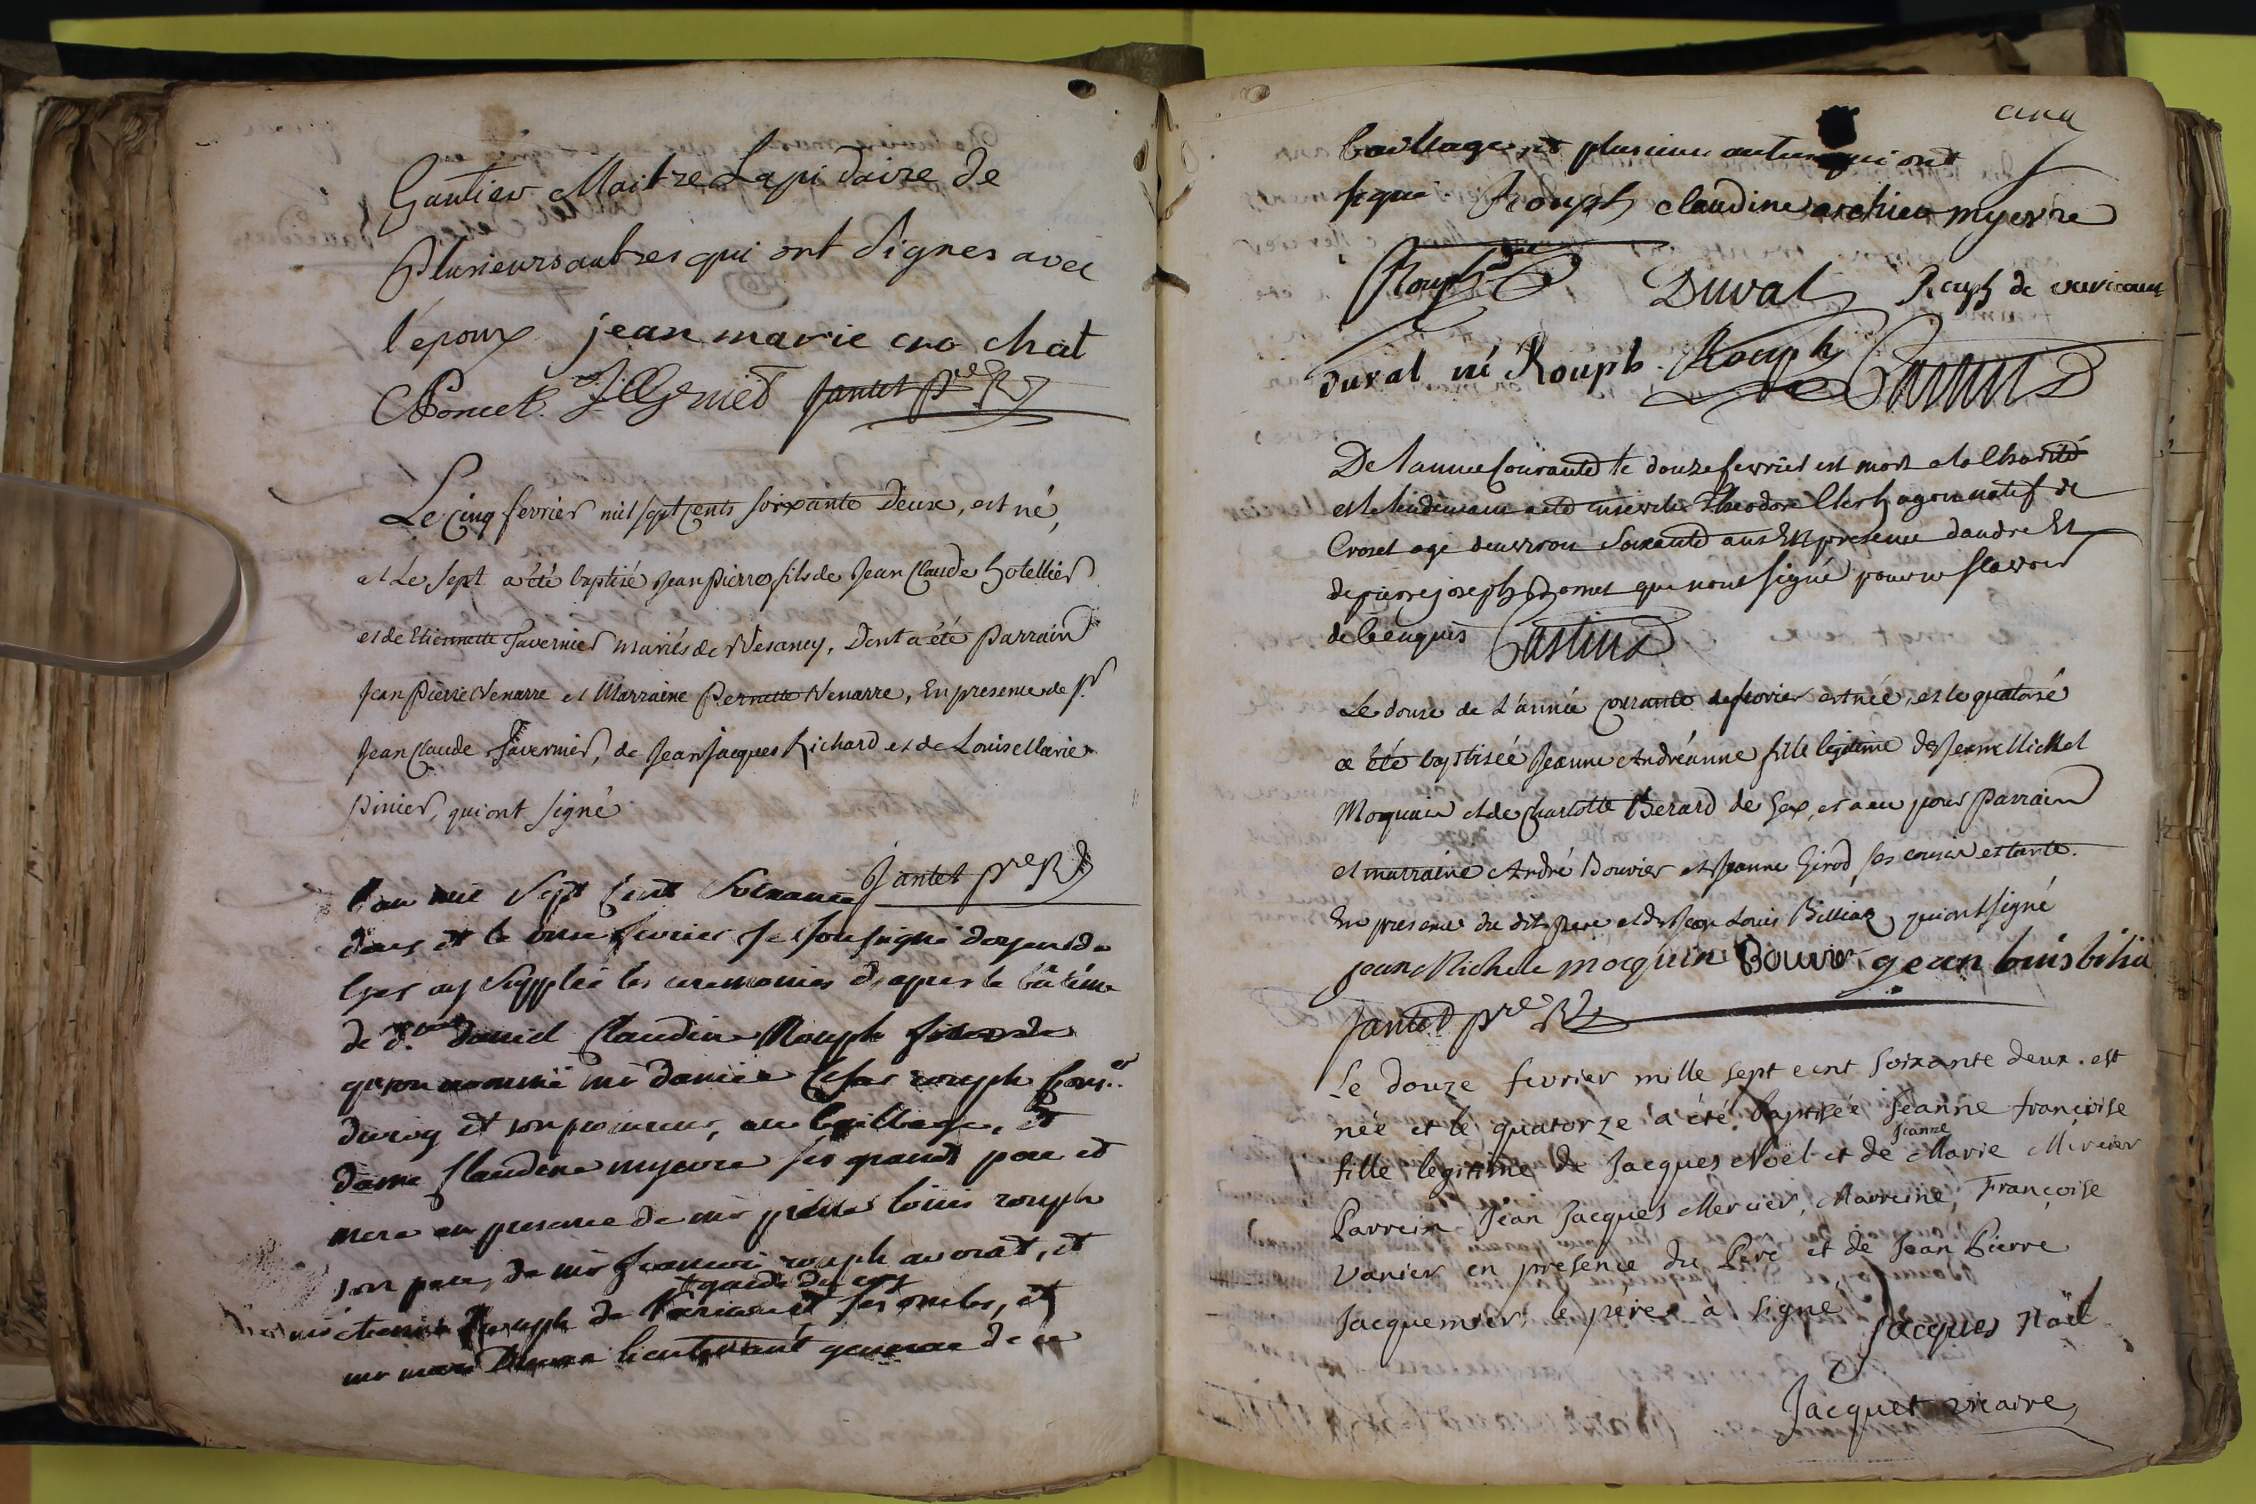 Gautier Maitre Lapidaire de
Plusieurs autres qui ont signes avec
l'epoux jean marie cro chat
CPoncet. Jantet ptre
Le Cinq fevrier mil sept Cents soixante Deux, est né,
et Le sept a été baptisé Jean Pierre fils de Jean Claude hotellier
et de Etiennette Tavernier mariés de Vesancy, Dont a été Parrain
Jean Pierre Venarre et Marraine Pernette Venarre, En presence de Sr
Jean Claude Tavernier, de Jean Jacques Richard et de Louise Marie
Pinier, qui ont signé
Jantet ptre
l'an mil sept Cent Soixante
deux et le onze fevrier Je soussigné doyen de
Gex ay Supplée les ceremonies d'apres le batême
de daniel Claudine Rouph
nommé mr daniel Cesar rouph Cons.er
du roy et son procureur, au bailliage, et
dame Claudine myevre ses grands pere et
mere en presence de mr pierre louis rouph
son pere, de mr françois rouph avocat, et
garde du corps
mr etienne Rouph de Varicourt ses oncles, et
mr lieutenant general de ce
cinq
bailliage, et plusieurs autres qui ont
signé Rouph claudine myevre
Rouph Duval Rouph de varicourt
duval né Rouph. Rouph Castin
De l'annee Courante le douze fevrier est mort a la Charité
et le lendemain a eté enseveli Theodore natif de
Crozet agé d'environ Soixante ans En presence d'andre Et
de pierre joseph qui n'ont signé pour ne scavoir
de ce enquis Castin
Le douze de L'année Courante de fevrier est née, et le quatorzé
a été baptisée Jeanne Andréanne fille legitime de Jean Michel
Moquin et de Charlotte Berard de Gex, et a eu pour Parrain
et marraine André Bouvier et Jeanne Girod ses cousin et tante.
En presence du dit Pere et de Jean Louis Billiaz qui ont signé
jean Michele mocquin Bouvier jean louis bilia
Jantet ptre
Le douze fevrier mille sept cent soixante deux. est
née et le quatorze a été baptisée jeanne françoise
jeanne
fille legitime de Jacques Noël et de Marie Mercier
Parrein Jean Jacques Mercier, Marreine, Françoise
Vanier en présence du Pere et de Jean Pierre
Jacquemier, le pere à signe
jacques Noël
Jacquet vicaire